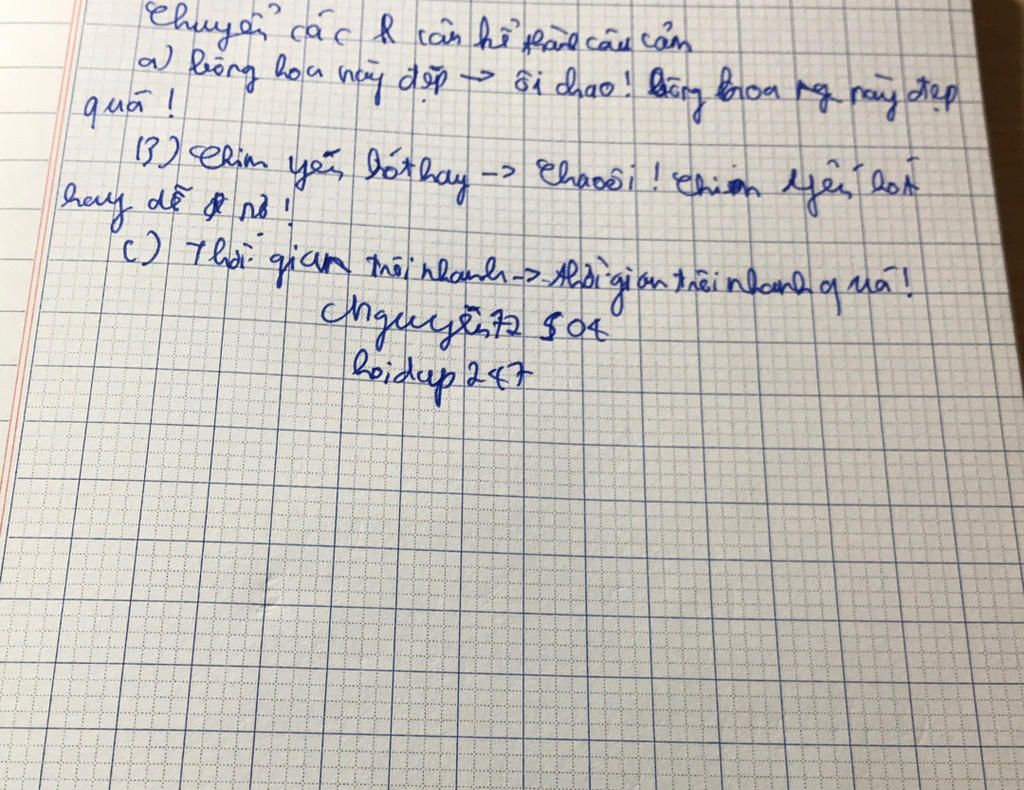 Chuyển các câu kể thành câu cảm
a) bông hoa này đẹp -> ôi chao! bông hoa này đẹp
quá!
B) chim yến hót hay -> Chao ôi! chim yến hót
hay dễ nở!
c) Thời gian trôi nhanh -> thời gian trôi nhanh quá!
Nguyễn72 504
hoidap 247